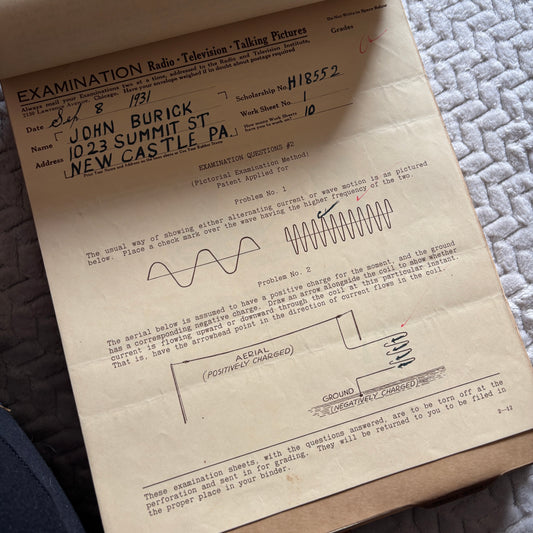 Do Not Write in Space Below
EXAMINATION Radio · Television · Talking Pictures
Grades
Always mail your Examinations two at a time, addressed to the Radio and Television Institute,
2130 Lawrence Avenue, Chicago. Have your envelope weighed if in doubt about postage required
Date Sep 8 1931 Scholarship No. H18552
Name JOHN BURICK Work Sheet No. 1
Address 1023 SUMMIT ST. How many Work Sheets have you to work on? 10
NEW CASTLE PA.
EXAMINATION QUESTIONS #2
(Pictorial Examination Method)
Patent Applied for
Problem No. 1
The usual way of showing either alternating current or wave motion is as pictured
below. Place a check mark over the wave having the higher frequency of the two.
Problem No. 2
The aerial below is assumed to have a positive charge for the moment, and the ground
has a corresponding negative charge. Draw an arrow alongside the coil to show whether
current is flowing upward or downward through the coil at this particular instant.
That is, have the arrowhead point in the direction of current flows in the coil.
AERIAL
(POSITIVELY CHARGED)
GROUND
(NEGATIVELY CHARGED)
2-12
These examination sheets, with the questions answered, are to be torn off at the
perforation and sent in for grading. They will be returned to you to be filed in
the proper place in your binder.